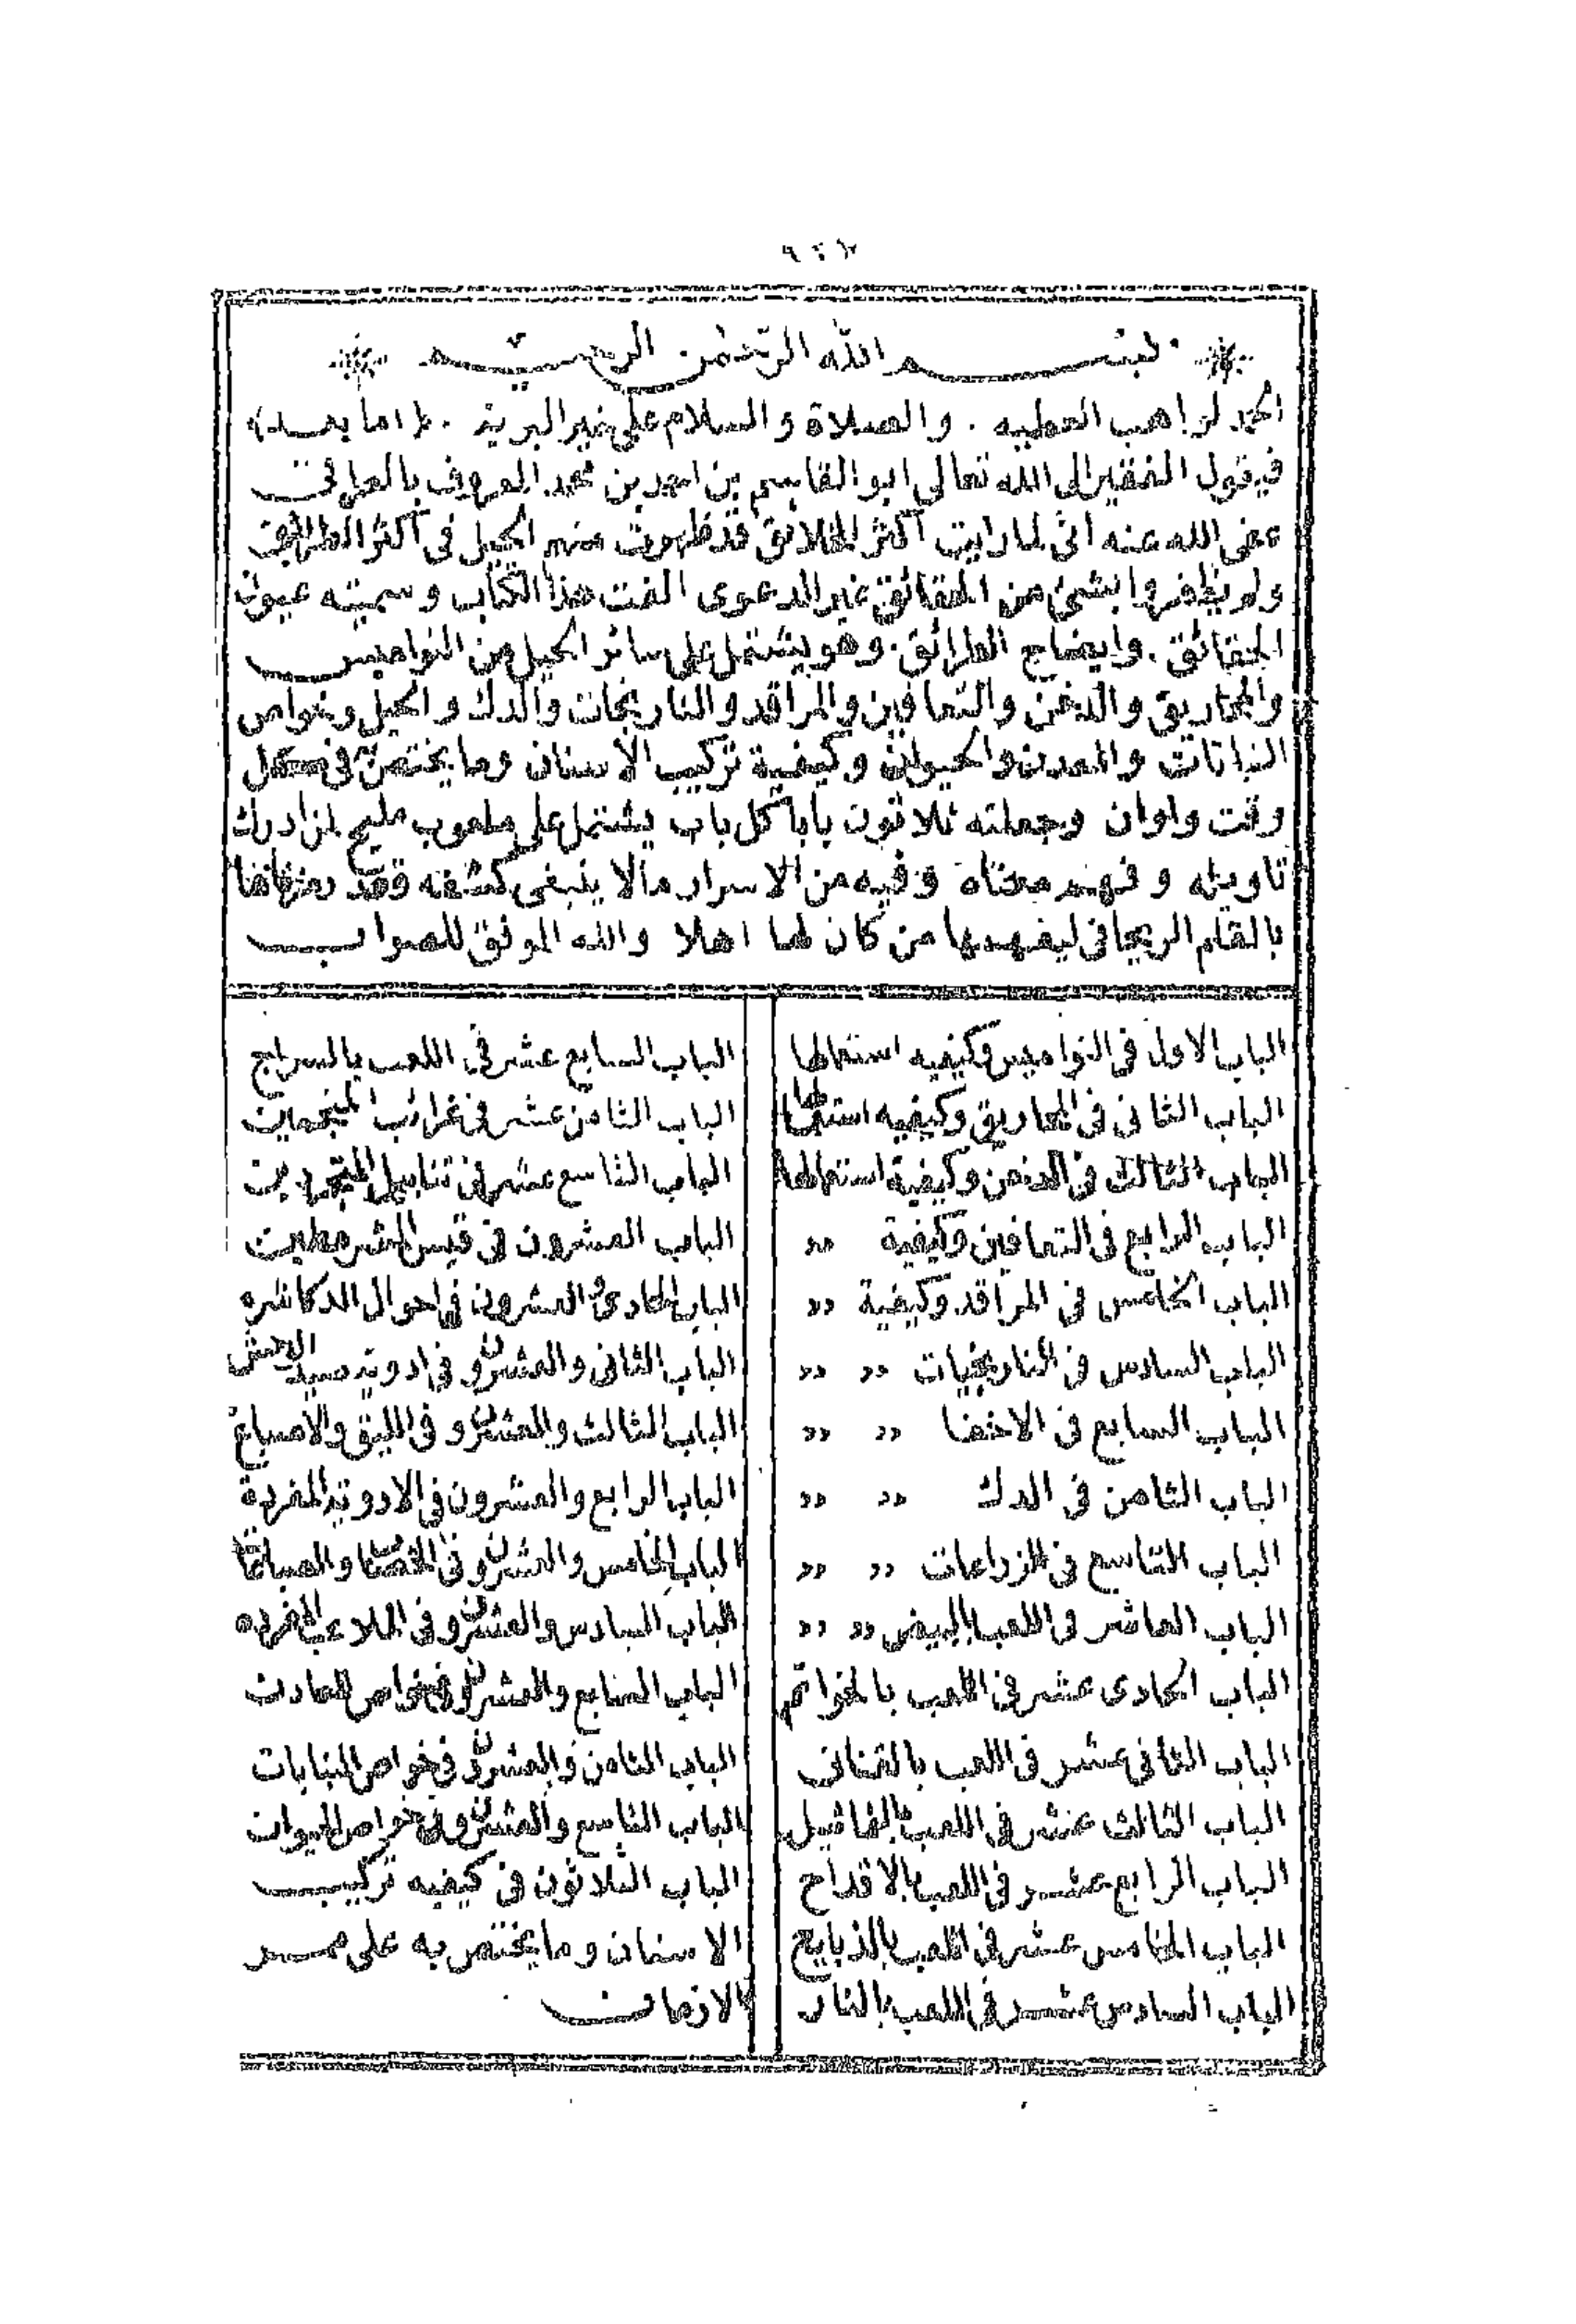 بسم الله الرحمن الرحيم
الحمد لواهب العطيه . والصلاة والسلام على خير البريه . (اما بعد)
فيقول الفقير الى الله تعالى ابو القاسم بن احمد بن محمد المعروف بالعراقى
عفى الله عنه انى لما رايت اكثر الخلائق قد ظهرت منهم الحيل فى اكثر الطرائق
ولم يظفروا بشئ من الحقائق غير الدعوى الفت هذا الكتاب وسميته عيون
الحقائق . وايضاح الطرائق . وهو يشتمل على سائر الحيل من النواميس
والمخاريق والدخن والتعافين والمراقد والنارنجات والدك والحيل وخواص
النباتات والمعدن والحيوان وكيفية تركيب الاسنان وما يختص فى كل
وقت واوان وجعلته ثلاثون بابا كل باب يشتمل على ملعوب مليح لمن ادرك
تاويله وفهم معناه وفيه من الاسرار مالا ينبغى كشفه وقد
بالقلم الريحانى ليفهمها من كان لها اهلا والله الموفق للصواب
الباب الاول فى النواميس وكيفيه استعمالها
الباب الثانى فى المخاريق وكيفيه استعمالها
الباب الثالث فى الدخن وكيفية استعمالها
الباب الرابع فى التعافين وكيفية »
الباب الخامس فى المراقد وكيفية »
الباب السادس فى النارنجيات » »
الباب السابع فى الاخفا » »
الباب الثامن فى الدك » »
الباب التاسع فى الزراعات » »
الباب العاشر فى اللعب بالبيض » »
الباب الحادى عشر فى اللعب بالخواتم
الباب الثانى عشر فى اللعب بالقنانى
الباب الثالث عشر فى اللعب بالتماثيل
الباب الرابع عشر فى اللعب بالاقداح
الباب الخامس عشر فى اللعب بالذبايح
الباب السادس عشر فى اللعب بالنار
الباب السابع عشر فى اللعب بالسراج
الباب الثامن عشر فى غرائب المنجمين
الباب التاسع عشر فى
الباب العشرون فى
الباب الحادى العشرون فى احوال الدكاشره
الباب الثانى والعشرون فى ادوية
الباب الثالث والعشرون فى الليق والاصباغ
الباب الرابع والعشرون فى الادوية المفردة
الباب الخامس والعشرون فى
الباب السادس والعشرون فى الملاعب المفرده
الباب السابع والعشرون فى خواص المعادن
الباب الثامن والعشرون فى خواص النباتات
الباب التاسع والعشرون فى خواص الحيوان
الباب الثلاثون فى كيفيه تركيب
الاسنان وما يختص به على ممر
الازمان